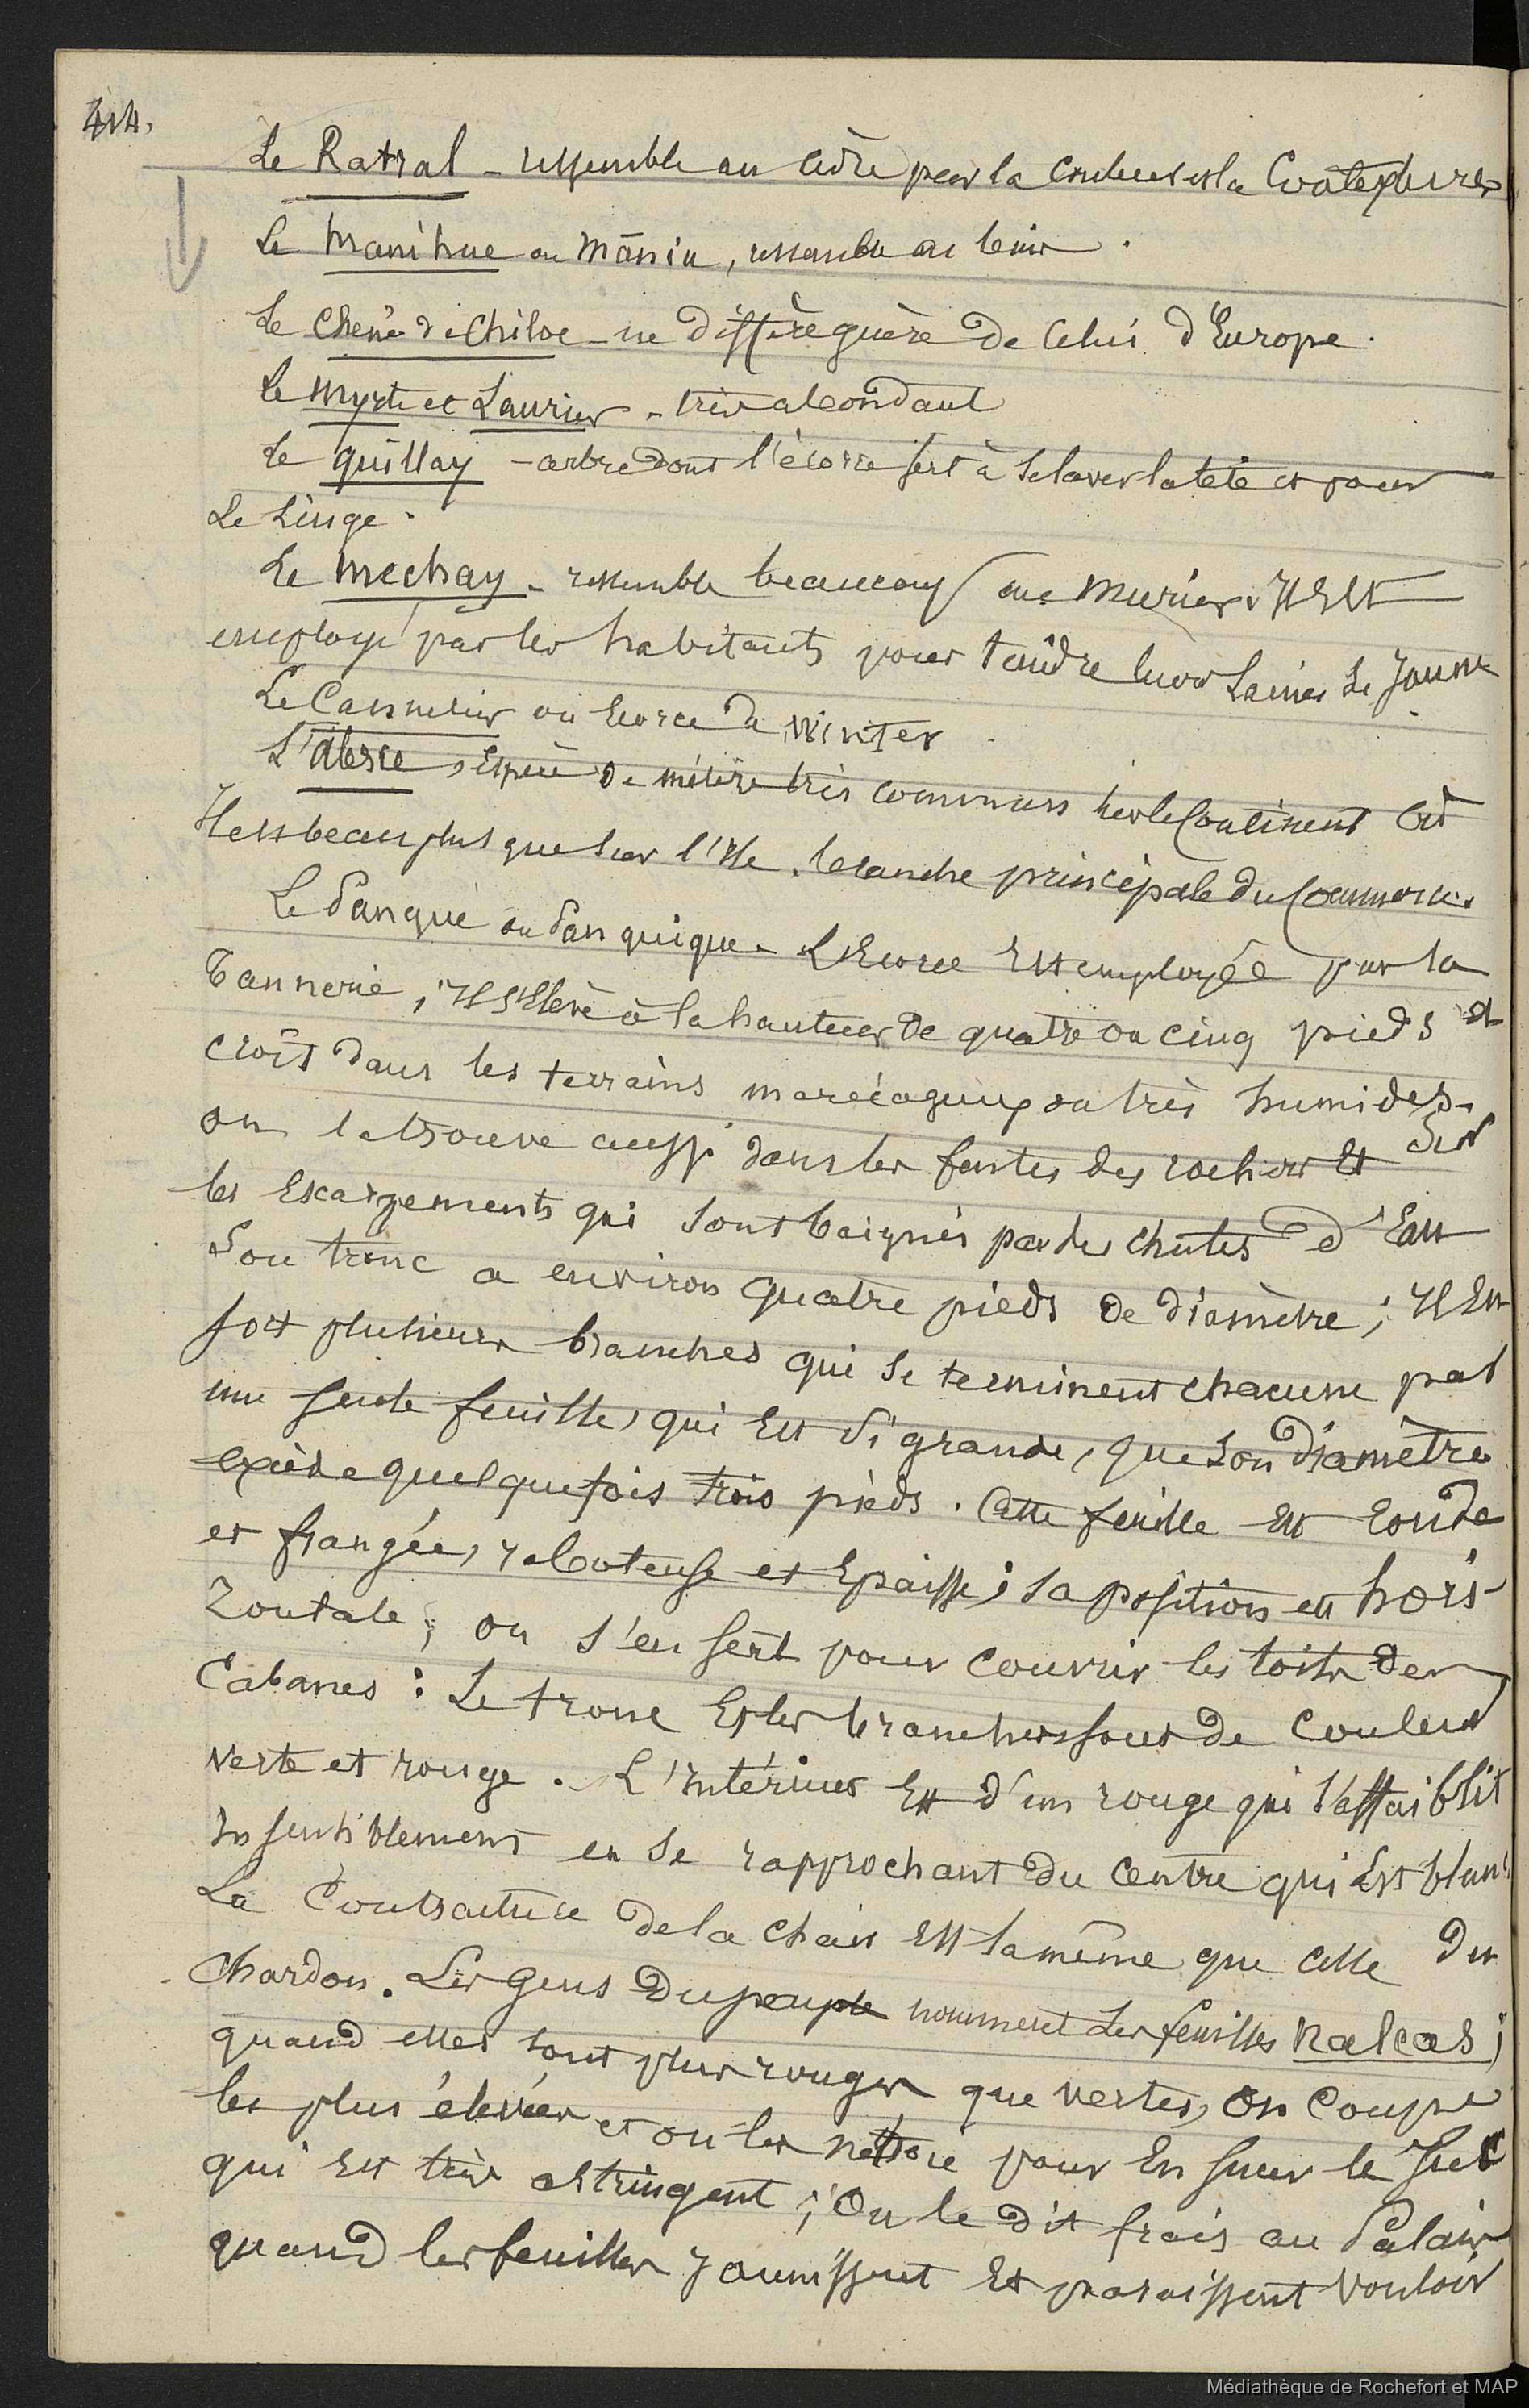 414.
Le Ratral - ressemble au cèdre par la couleur et la Contexture
Le manihue ou Māniu, ressemble au
Le Chêne de Chiloe - ne diffère guère de Celui d'Europe.
Le Myrte et Laurier - très abondant
Le quillay - arbre dont l'écorce sert à se laver la tête et pour
Le Linge.
Le mechay - ressemble beaucoup au Murier. Il Est
employé par les habitants pour teindre leurs Laines de Jaune
Le Cannelier ou Ecorce de Winter.
L'Alerce, Espèce de mélèze très commun sur le Continent Où
Il est beau plus que sur l'Ile. branche principale du Commerce.
Le Panqué ou Panquique. L'Ecorce Est employée pour la
Tannerie, Il S'Elève à la hauteur de quatre ou cinq pieds et
croît dans les terrains marécageux ou très humides.
on le trouve aussi dans les fentes des rochers Et Sur
les Escarpements qui sont baignés par des chutes d'Eau
Son tronc a environ quatre pieds de diamètre; Il En
sort plusieurs branches qui se terminent chacune par
une seule feuille, qui Est si grande, que son diamètre
excède quelquefois trois pieds. Cette feuille est ronde
et frangée, raboteuse et Epaisse; sa position est hori-
zontale; on s'en sert pour couvrir les toits des
Cabanes: Le tronc Et les branches sont de couleur
verte et rouge. L'Intérieur Est d'un rouge qui s'affaiblit
Insensiblement en se rapprochant du centre qui Est blanc
La Contracture de la chair Est la même que celle du
Chardon. Les gens du peuple nomment Les feuilles nalcas;
quand elles sont plus rouges que vertes, On coupe
les plus élevées et on les nettoie pour En sucer le Suc
qui Est très astringent; On le dit frais au Palais
quand les feuilles Jaunissent Et paraissent vouloir
Médiathèque de Rochefort et MAP